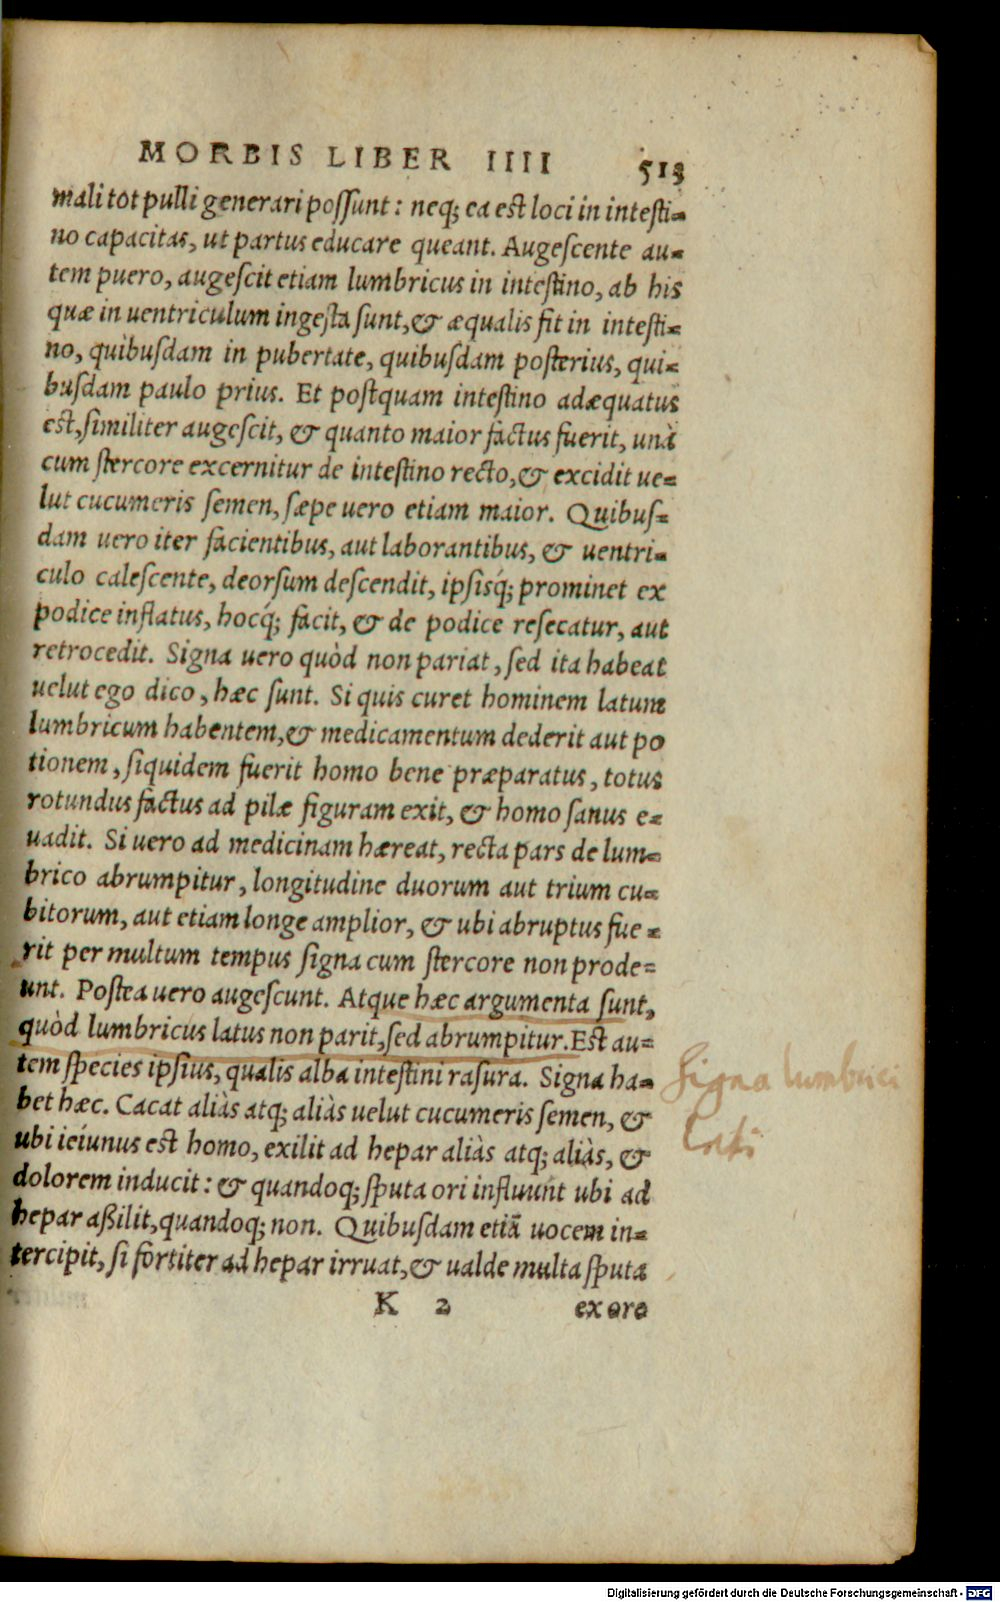 MORBIS LIBER IIII 513
mali tot pulli generari possunt: neq; ea est loci in intesti-
no capacitas, ut partus educare queant. Augescente au-
tem puero, augescit etiam lumbricus in intestino, ab his
quæ in uentriculum ingesta sunt, & æqualis fit in intesti-
no, quibusdam in pubertate, quibusdam posterius, qui-
busdam paulo prius. Et postquam intestino adæquatus
est, similiter augescit, & quanto maior factus fuerit, unà
cum stercore excernitur de intestino recto, & excidit ue-
lut cucumeris semen, sæpe uero etiam maior. Quibus-
dam uero iter facientibus, aut laborantibus, & uentri-
culo calescente, deorsum descendit, ipsisq́; prominet ex
podice inflatus, hocq́; facit, & de podice resecatur, aut
retrocedit. Signa uero quòd non pariat, sed ita habeat
uelut ego dico, hæc sunt. Si quis curet hominem latum
lumbricum habentem, & medicamentum dederit aut po
tionem, siquidem fuerit homo bene præparatus, totus
rotundus factus ad pilæ figuram exit, & homo sanus e-
uadit. Si uero ad medicinam hæreat, recta pars de lum-
brico abrumpitur, longitudine duorum aut trium cu-
bitorum, aut etiam longe amplior, & ubi abruptus fue-
rit per multum tempus signa cum stercore non prode-
unt. Postea uero augescunt. Atque hæc argumenta sunt,
quòd lumbricus latus non parit, sed abrumpitur. Est au-
tem species ipsius, qualis alba intestini rasura. Signa ha-
bet hæc. Cacat aliàs atq; aliàs uelut cucumeris semen, &
ubi ieiunus est homo, exilit ad hepar aliàs atq; aliàs, &
dolorem inducit: & quandoq; sputa ori influunt ubi ad
hepar aßilit, quandoq; non. Quibusdam etiã uocem in-
tercipit, si fortiter ad hepar irruat, & ualde multa sputa
K 2 ex ore
Signa lumbrici
lati
Digitalisierung gefördert durch die Deutsche Forschungsgemeinschaft - DFG